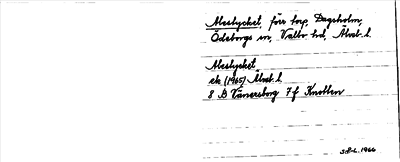 Alestycket, förr torp, Dagsholm,
Ödeborgs sn, Valbo hd, Älvsb. l.
Alestycket
ek (1965) Älvsb. l
8 B Vänersborg 7 f Knotten
1966